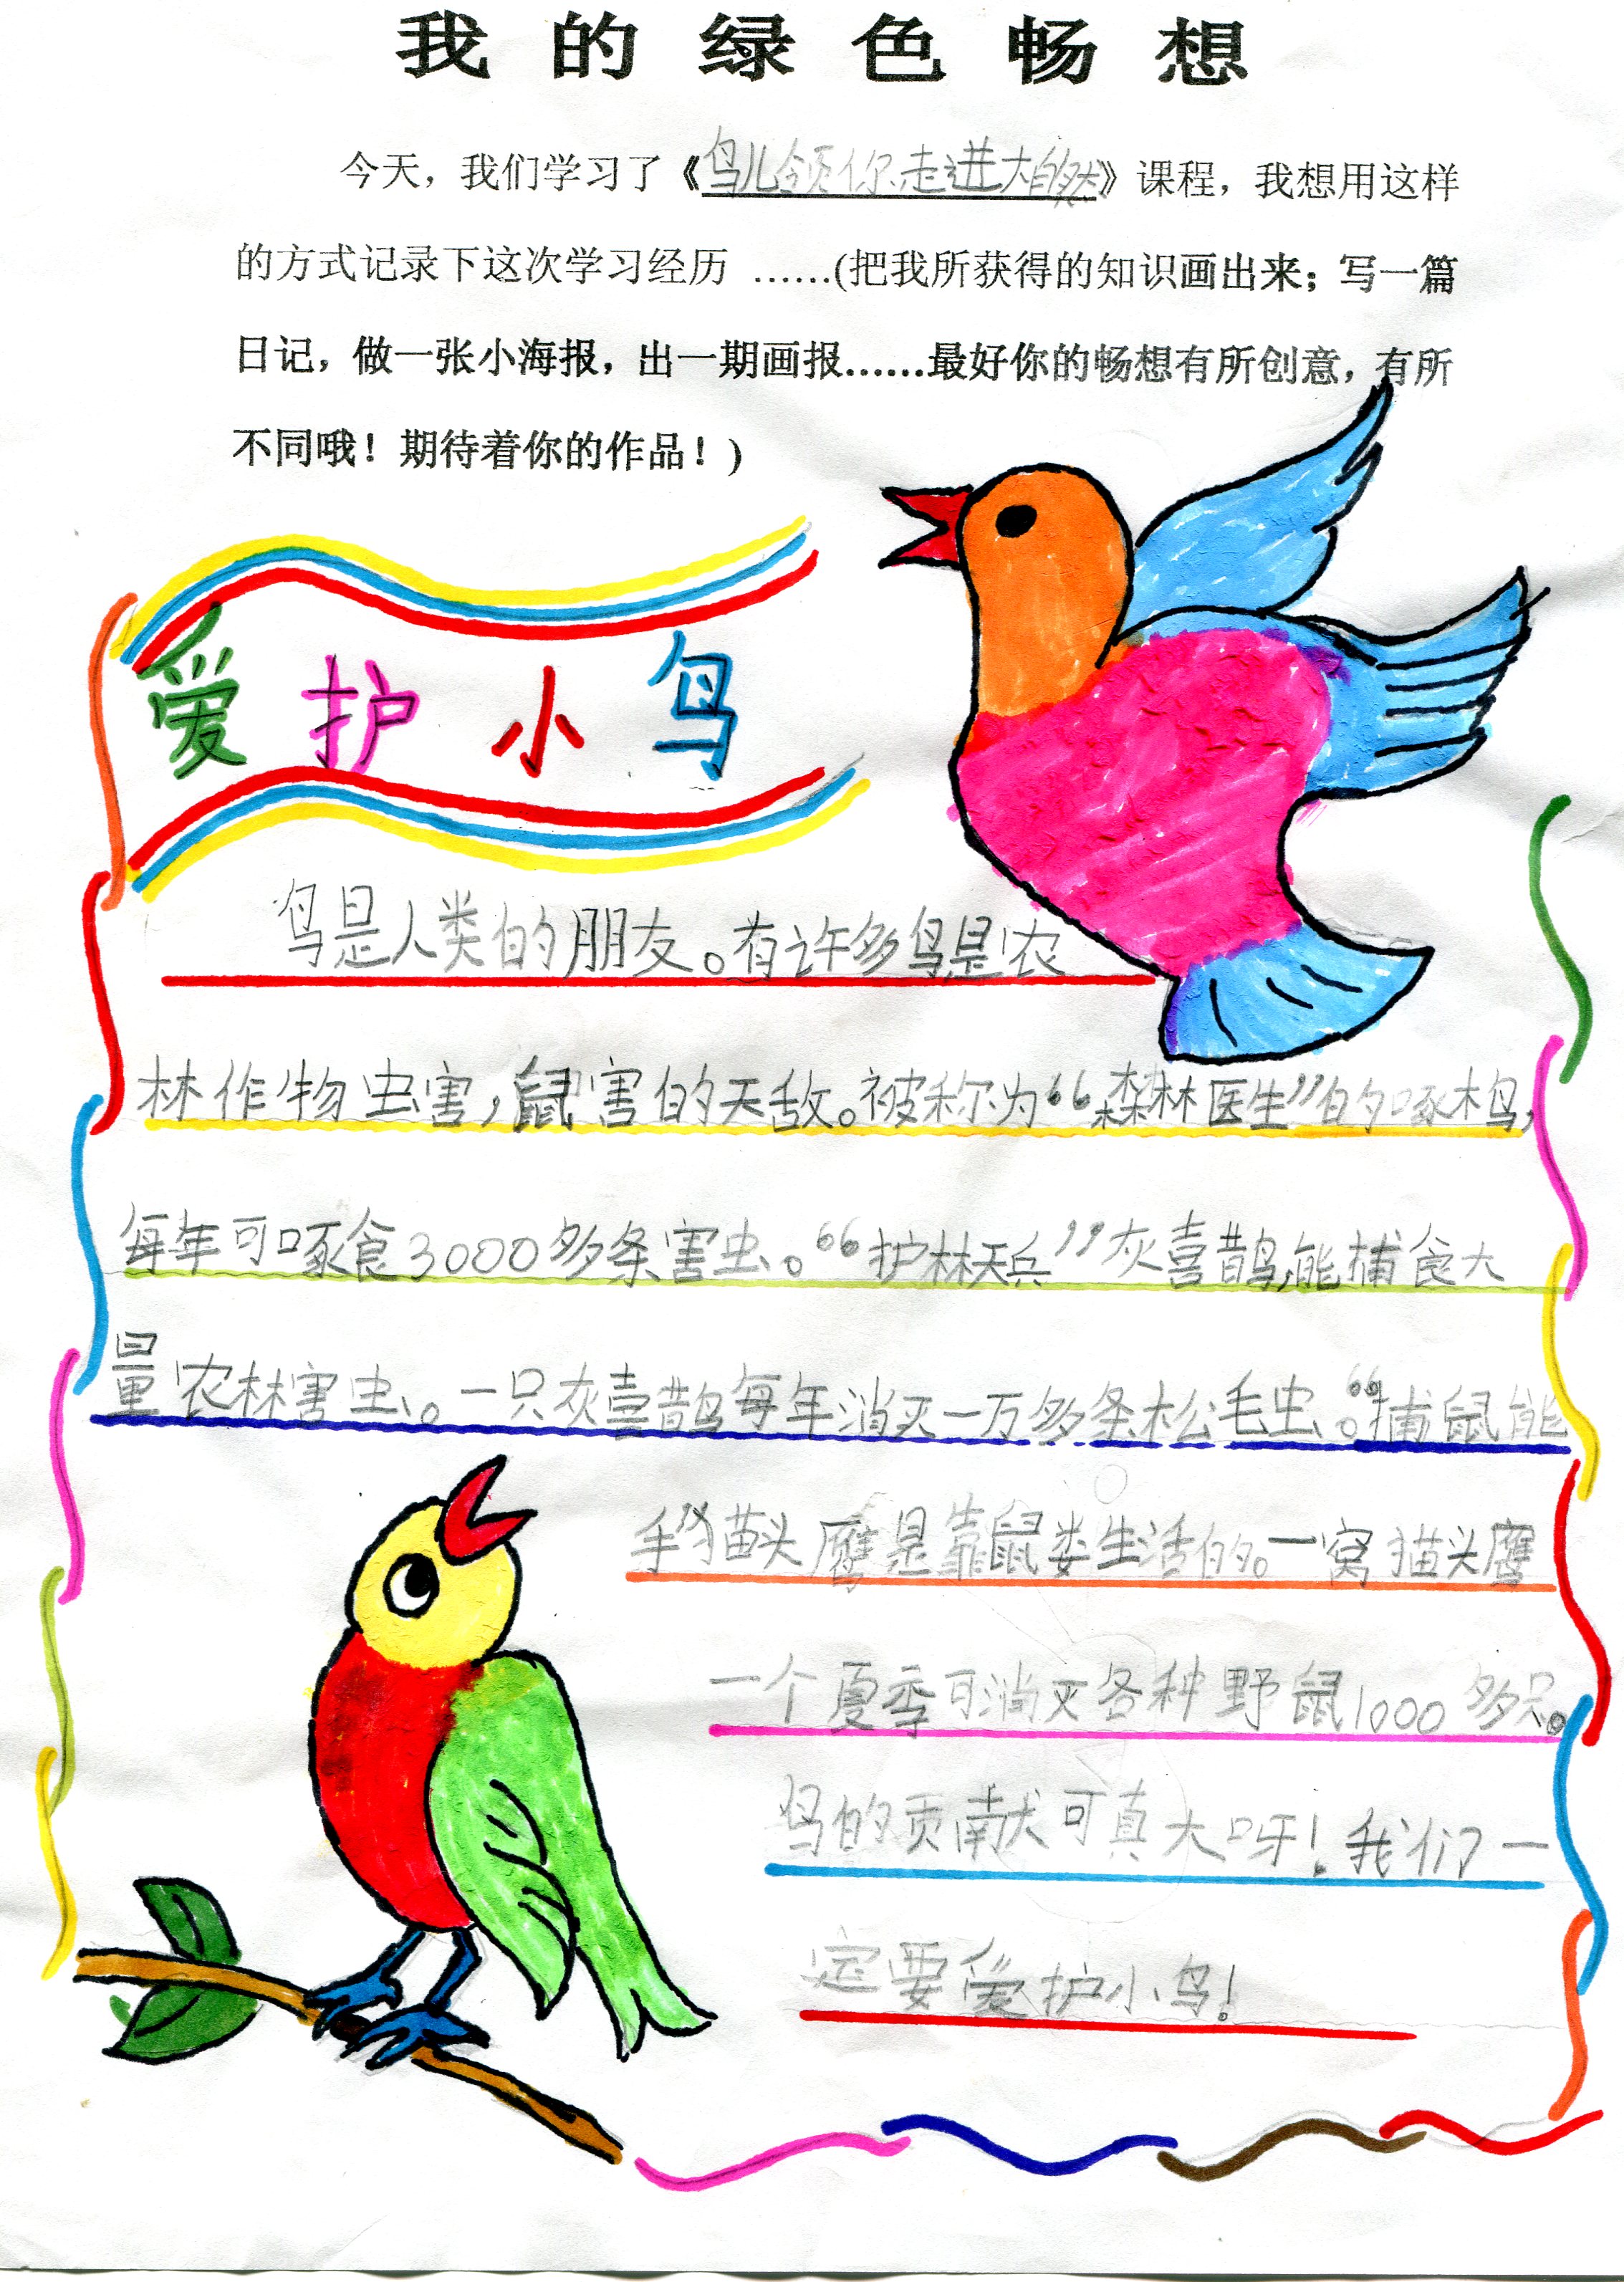 我的绿色畅想
今天，我们学习了《鸟儿领你走进大自然》课程，我想用这样
的方式记录下这次学习经历 ……(把我所获得的知识画出来；写一篇
日记，做一张小海报，出一期画报……最好你的畅想有所创意，有所
不同哦！期待着你的作品！)
爱护小鸟
鸟是人类的朋友。有许多鸟是农
林作物虫害，鼠害的天敌。被称为“森林医生”的啄木鸟，
每年可啄食3000多条害虫。“护林天兵”灰喜鹊，能捕食大
量农林害虫。一只灰喜鹊每年消灭一万多条松毛虫。“捕鼠能
手”猫头鹰是靠鼠类生活的。一窝猫头鹰
一个夏季可消灭各种野鼠1000多只。
鸟的贡献可真大呀！我们一
定要爱护小鸟！